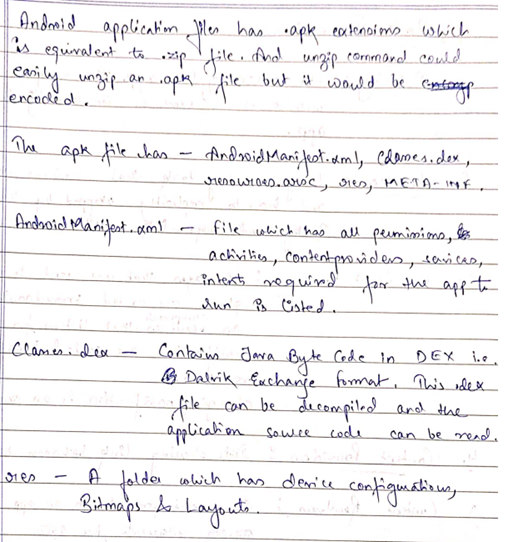 Android application files has .apk extensions which
is equivalent to .zip file. And unzip command could
easily unzip an .apk file but it would be
encoded.
The apk file has - AndroidManifest.xml, Classes.dex,
resources.arsc, res, META-INF.
AndroidManifest.xml - File which has all permissions,
activities, contentproviders, services,
intents required for the app to
run is listed.
Classes.dex - Contains Java Byte Code in DEX i.e.
Dalvik Exchange format. This .dex
file can be decompiled and the
application source code can be read.
res - A folder which has device configurations,
Bitmaps & Layouts.